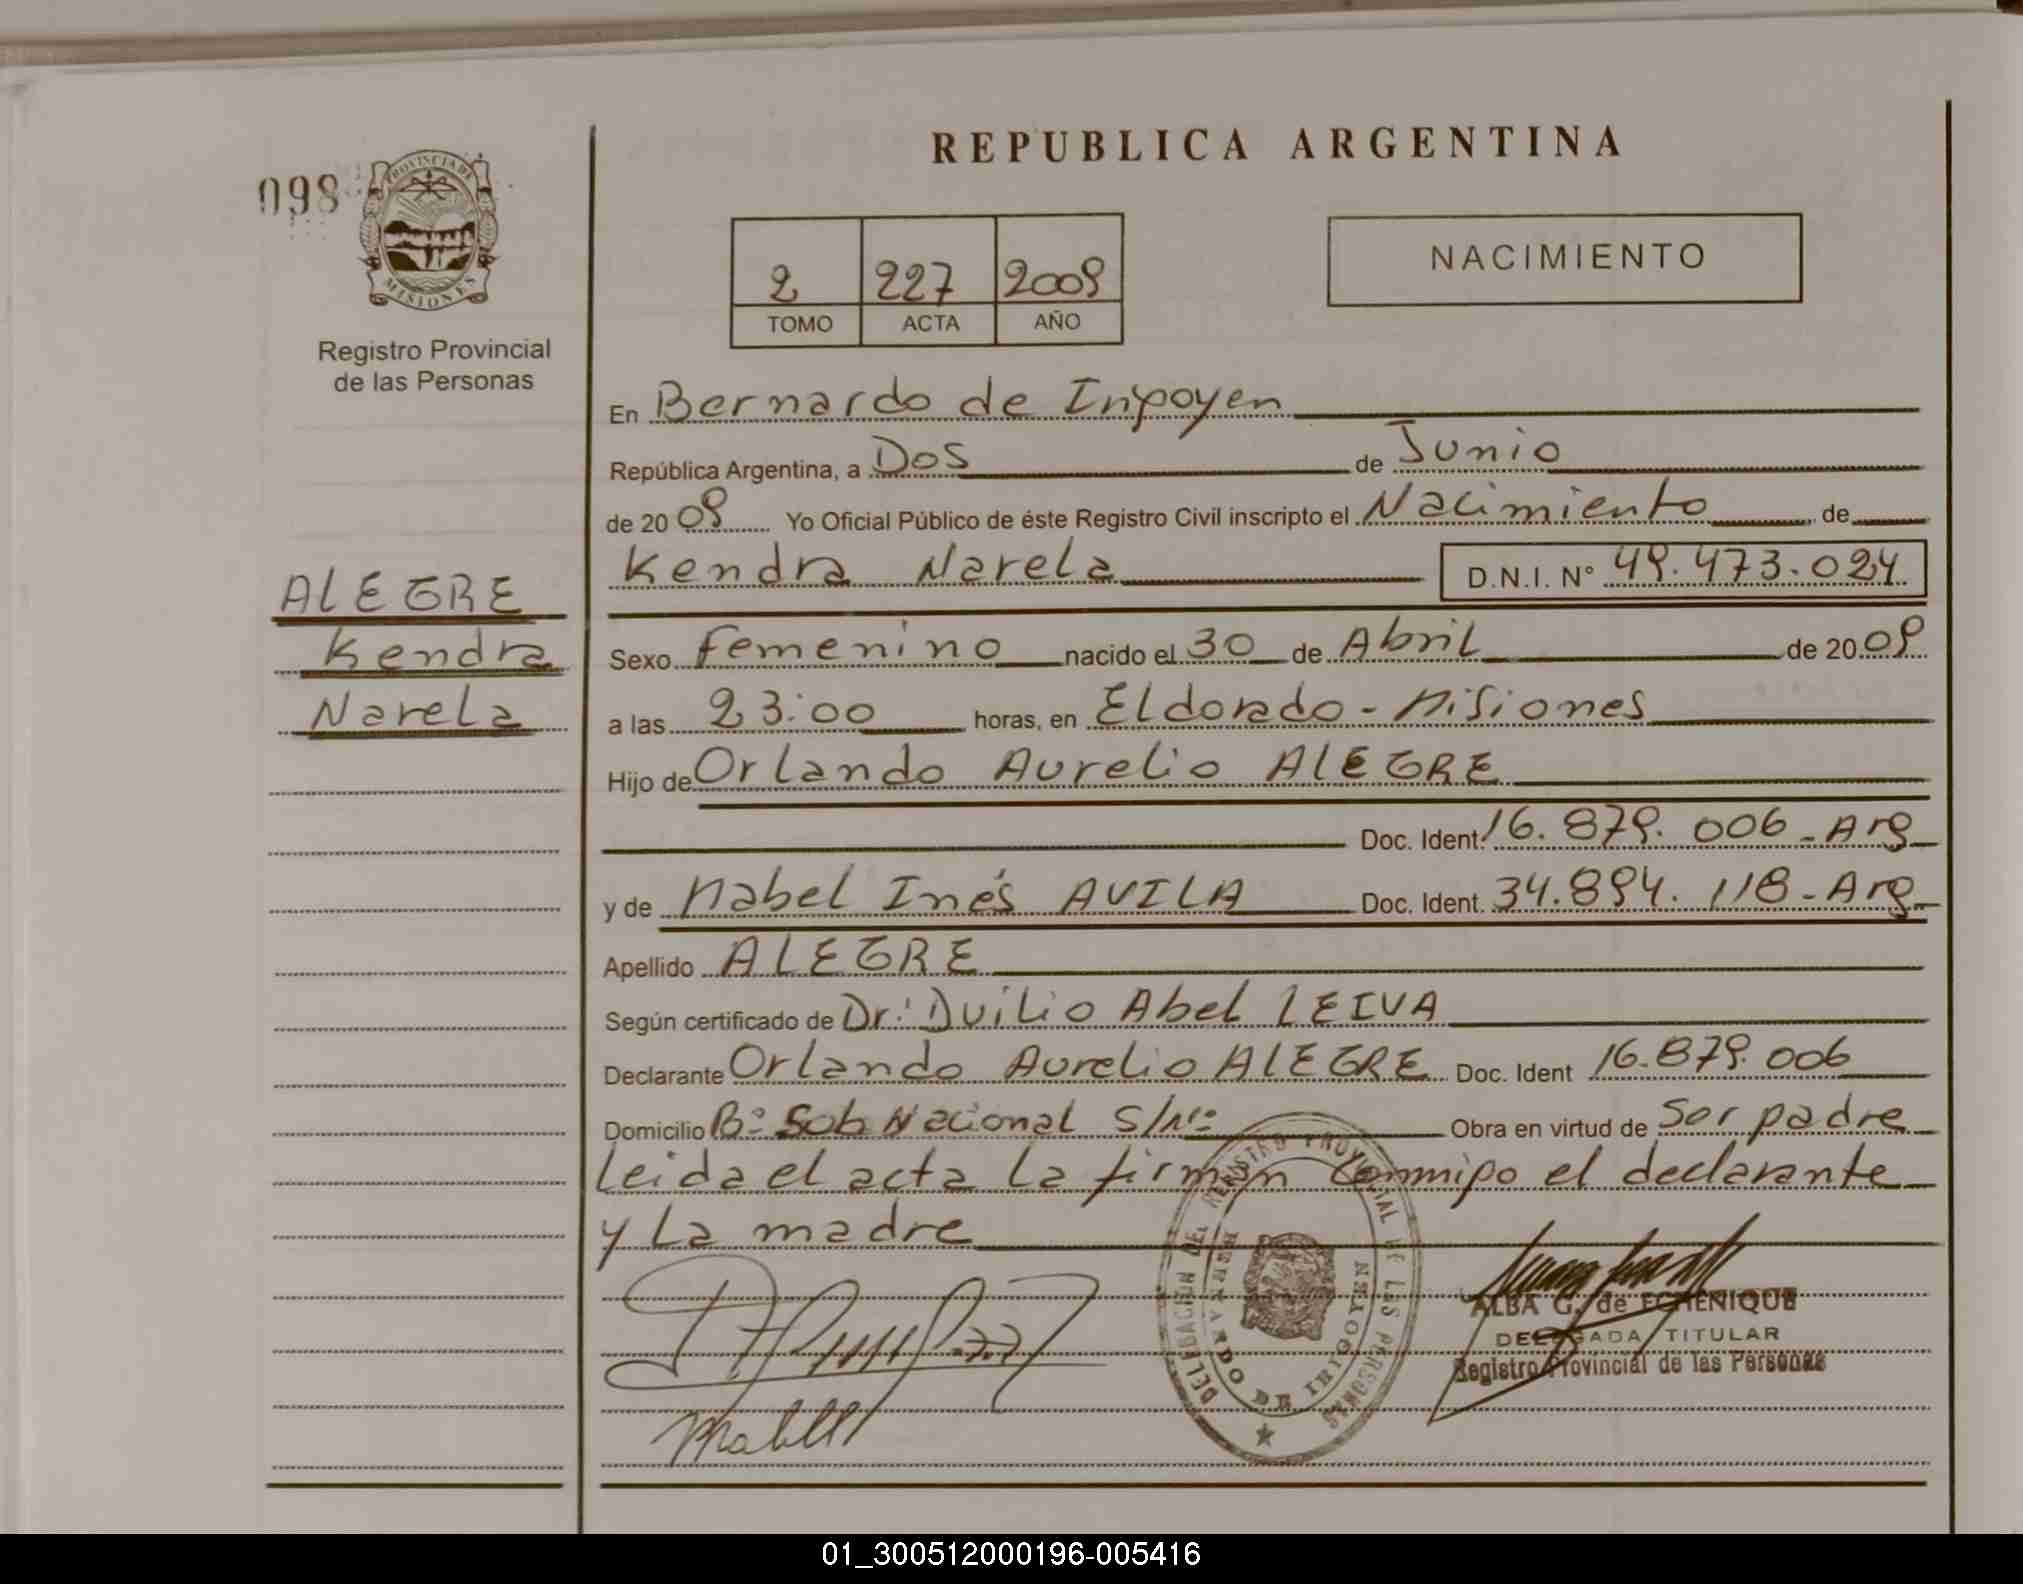 REPUBLICA ARGENTINA
098
PROVINCIA DE MISIONES
Registro Provincial
de las Personas
2 227 2009
TOMO ACTA AÑO
NACIMIENTO
En Bernardo de Irigoyen
República Argentina, a Dos de Junio
de 2009 Yo Oficial Público de éste Registro Civil inscripto el Nacimiento de
Kendra Narela D.N.I. N° 49.473.024
ALEGRE
Kendra
Narela
Sexo Femenino nacido el 30 de Abril de 2009
a las 23:00 horas, en Eldorado - Misiones
Hijo de Orlando Aurelio ALEGRE
Doc. Ident. 16.879.006 - Arg
y de Mabel Inés AVILA Doc. Ident. 34.894.118 - Arg
Apellido ALEGRE
Según certificado de Dr. Duilio Abel LEIVA
Declarante Orlando Aurelio ALEGRE Doc. Ident 16.879.006
Domicilio B° Sob Nacional S/N° Obra en virtud de Ser padre
Leida el acta la firman conmigo el declarante
y La madre
DELEGACION DEL REGISTRO PROVINCIAL DE LAS PERSONAS
BERNARDO DE IRIGOYEN
ALBA G. de ECHENIQUE
DELEGADA TITULAR
Registro Provincial de las Personas
01_300512000196-005416